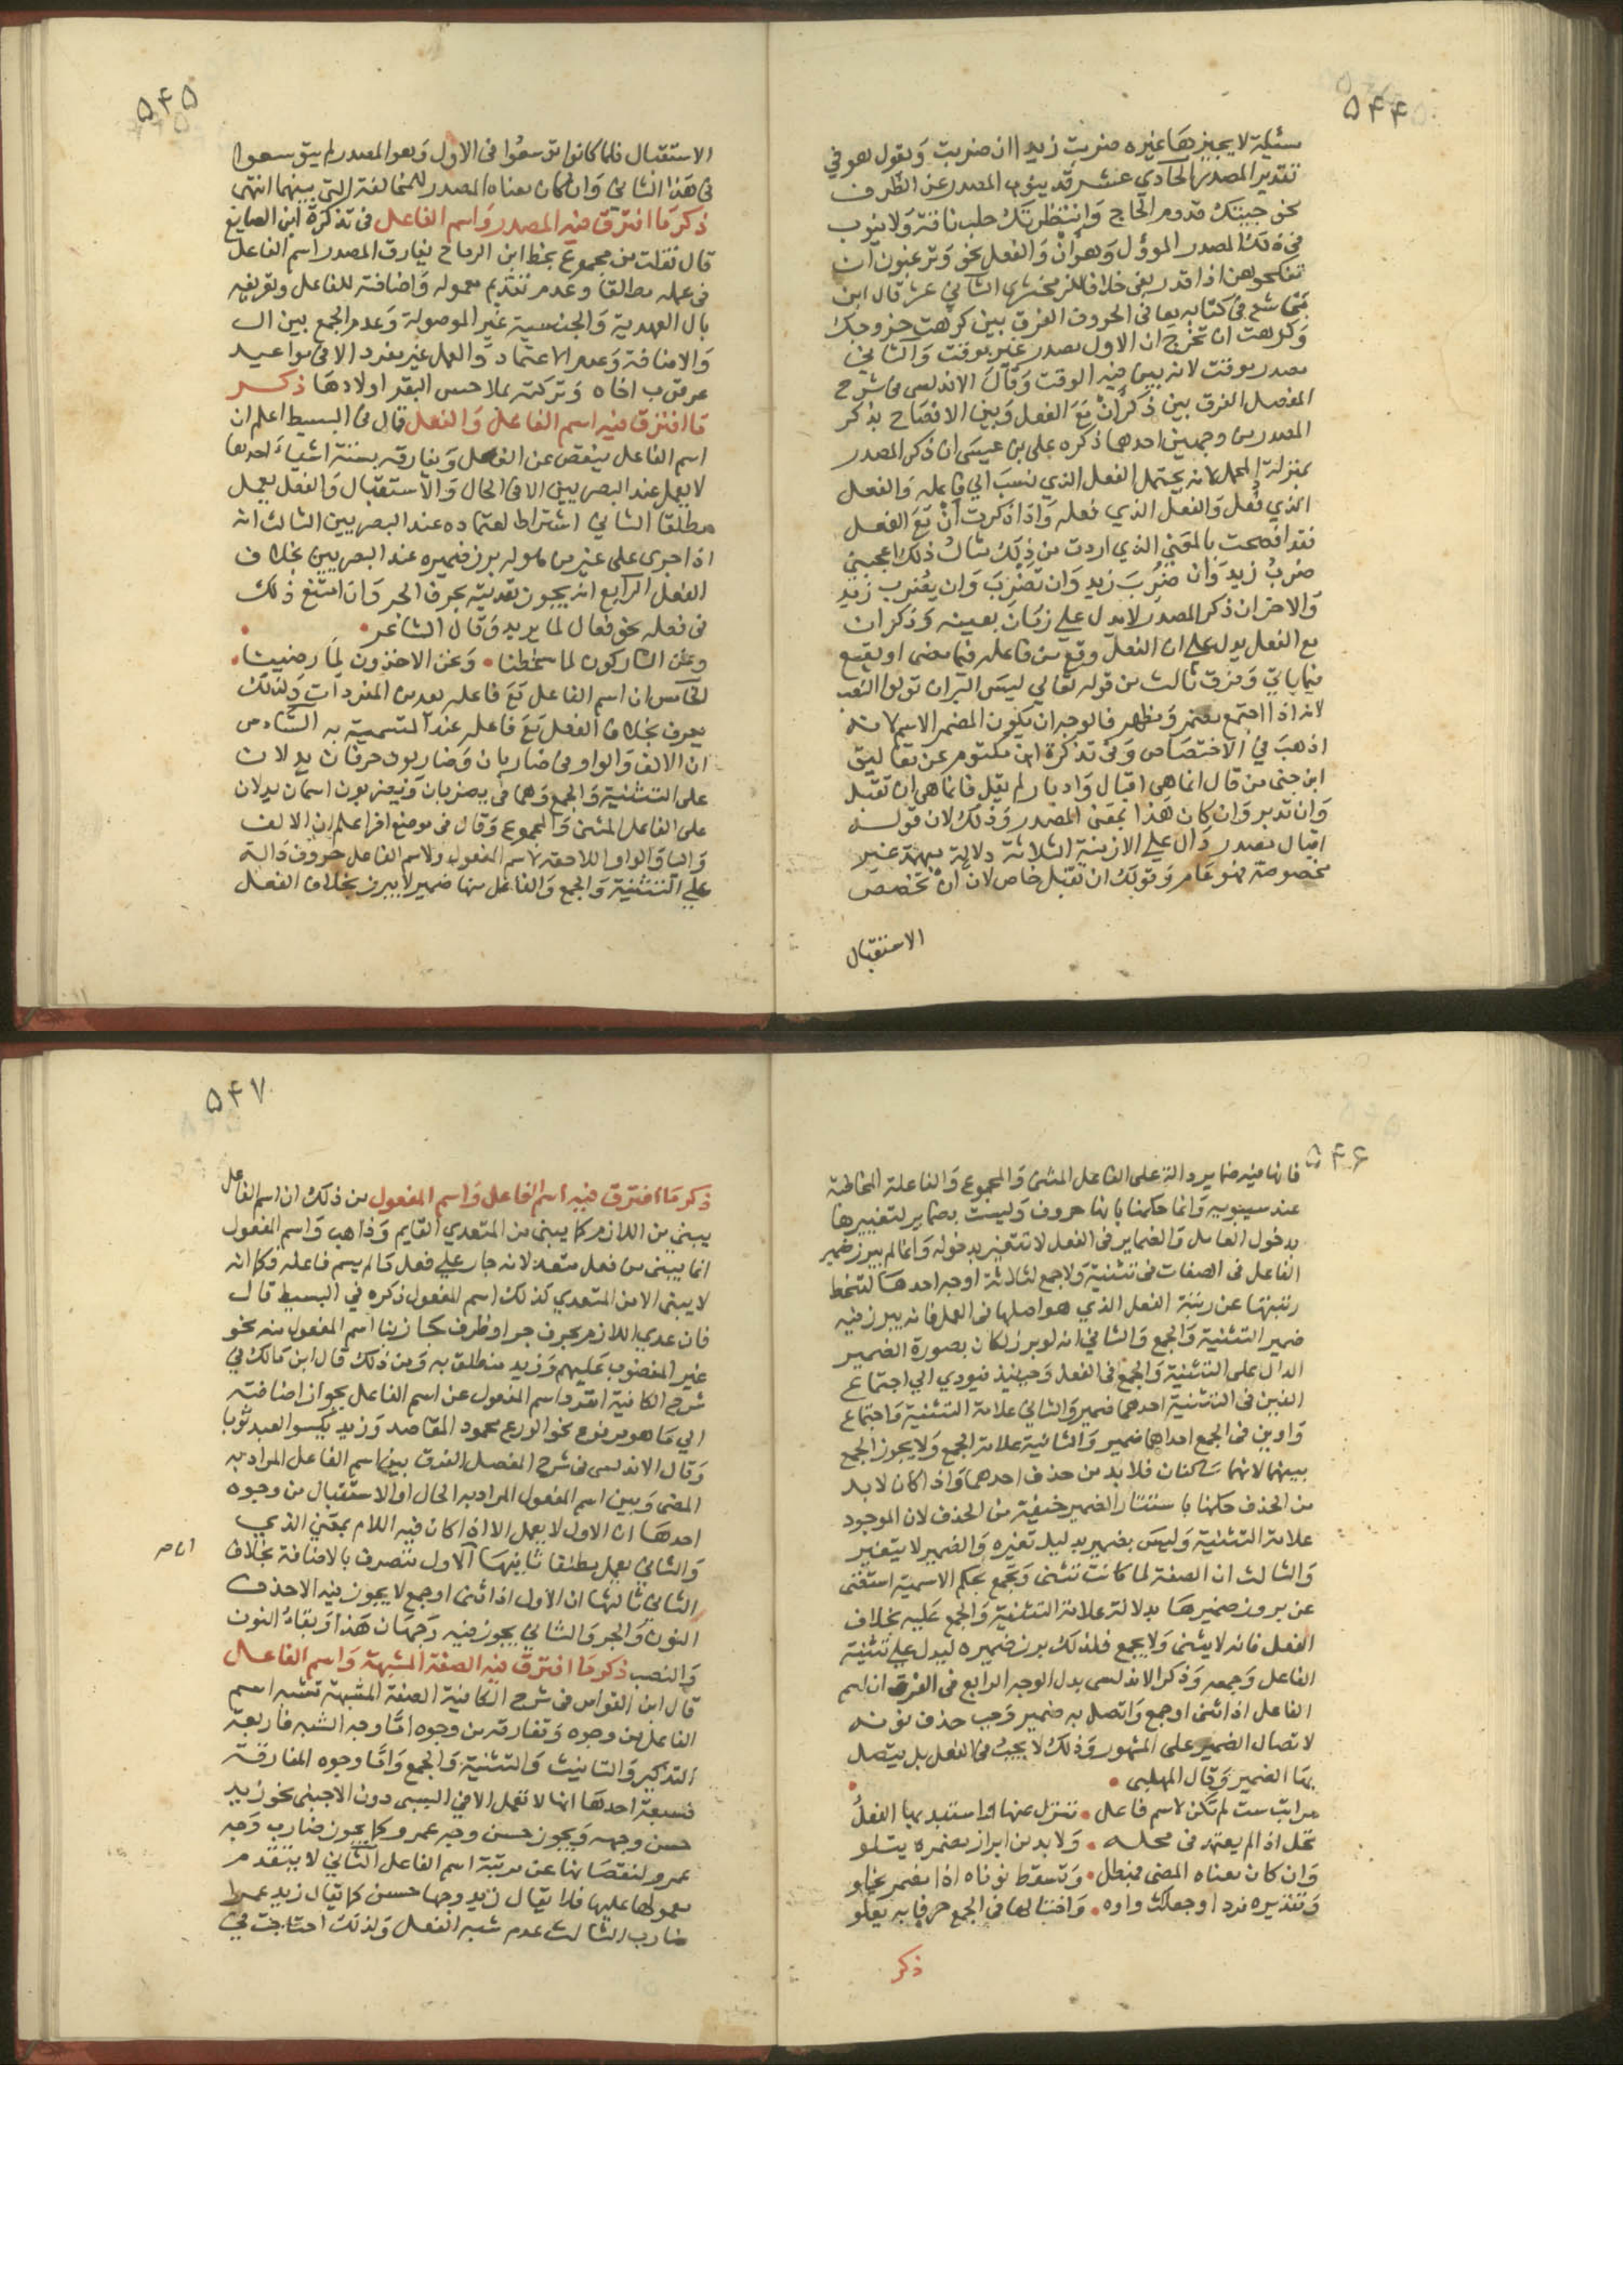 ۵۴۴
مسئلة لا يجيزها غيره ضربت زيدا ان ضربت ويقول هو في
تقدير المصدر الحادي عشر قد ينوب المصدر عن الظرف
نحو جيتك قدوم الحاج وانتظرتك حلب ناقة ولا ينوب
في ذلك المصدر المؤول وهو ان والفعل نحو وترغبون ان
تنكحوهن اذا قدر بفي خلافا للزمخشري الثاني عشر قال ابن
وكرهت ان تخرج ان الاول مصدر غير موقت والثاني
مصدر موقت لانه يبين فيه الوقت وقال الاندلسي في شرح
المفصل الفرق بين ذكر ان مع الفعل وبين الافصاح بذكر
المصدر من وجهين احدهما ذكره علي بن عيسى ان ذكر المصدر
بمنزلة المجمل لانه يحتمل الفعل الذي نسب الي فاعله والفعل
الذي فعل والفعل الذي فعله واذا ذكرت ان مع الفعل
فقد افصحت بالمعني الذي اردت من ذلك مثال ذلك اعجبني
ضرب زيد وان ضرب زيد وان تضرب وان يضرب زيد
والاخر ان ذكر المصدر لا يدل علي زمان بعينه وذكر ان
مع الفعل يدل علي ان الفعل وقع من فاعله فيما مضى او يقع
فيما ياتي وفرق ثالث من قوله تعالي ليس البر ان تولوا النصب
لانه اذا اجتمع مضمر ومظهر فالوجه ان يكون المضمر الاسم لانه
اذهب في الاختصاص وفي تذكرة ابن مكتوم عن تعاليق
ابن جني من قال انما هي اقبال وادبار لم يقل فانما هي ان تقبل
وان تدبر وان كان هذا بمعني المصدر وذلك لان قوله
اقبال مصدر دال علي الازمنة الثلاثة دلالة مبهمة غير
مخصوصة فهو عام وقولك ان تقبل خاص لان ان تخصص
الاستقبال
۵۴۵
الاستقبال فلما كانوا توسعوا في الاول وهو المصدر لم يتوسعوا
في هذا الثاني وان كان معناه المصدر للمخالفة التي بينهما انتهى
ذكر ما افترق فيه المصدر واسم الفاعل في تذكرة ابن الصايغ
قال نقلت من مجموع بخط ابن الرماح يفارق المصدر اسم الفاعل
في عمله مطلقا وعدم تقديم معموله واضافته للفاعل وتعريفه
بال العهدية والجنسية غير الموصولة وعدم الجمع بين ال
والاضافة وعدم الاعتماد والعمل غير مفرد الا في مواعيد
عرقوب اخاه وتركته بملاحس البقر اولادها ذكر
ما افترق فيه اسم الفاعل والفعل قال في البسيط اعلم ان
اسم الفاعل ينقص عن الفعل ويفارقه بستة اشياء احدها
لا يعمل عند البصريين الا في الحال والاستقبال والفعل يعمل
مطلقا الثاني اشتراط اعتماده عند البصريين الثالث انه
اذا جرى على غير من هو له برز ضميره عند البصريين بخلاف
الفعل الرابع انه يجوز تعديته بحرف الجر وان امتنع ذلك
في فعله نحو فعال لما يريد وقال الشاعر
ونحن التاركون لما سخطنا • ونحن الاخذون لما رضينا •
الخامس ان اسم الفاعل مع فاعله يعد من المفردات ولذلك
يعرب بخلاف الفعل مع فاعله عند التسمية به السادس
ان الالف والواو في ضاربان وضاربون حرفان يدلان
على التثنية والجمع وهما في يضربان ويضربون اسمان يدلان
على الفاعل المثنى والمجموع وقال في موضع اخر اعلم ان الالف
واليا والواو اللاحقة لاسم المفعول ولاسم الفاعل حروف دالة
علي التثنية والجمع والفاعل منها ضمير لا يبرز بخلاف الفعل
۵۴۶
فانها فيه ضماير دالة على الفاعل المثنى والمجموع والفاعلة المخاطبة
عند سيبويه وانما حكمنا بانها حروف وليست بضماير لتغييرها
بدخول العامل والضماير في الفعل لا تتغير بدخوله وانما لم يبرز ضمير
الفاعل في الصفات في تثنية ولا جمع لثلاثة اوجه احدها لتنحط
رتبتها عن رتبة الفعل الذي هو اصلها في العمل فانه يبرز فيه
ضمير التثنية والجمع والثاني انه لو برز لكان بصورة الضمير
الدال على التثنية والجمع في الفعل وحينئذ فيودي الي اجتماع
الفين في التثنية احدهما ضمير والثاني علامة التثنية واجتماع
واوين في الجمع احداهما ضمير والثانية علامة الجمع ولا يجوز الجمع
بينهما لانهما ساكنان فلا بد من حذف احدهما واذا كان لا بد
من الحذف حكمنا باستتار الضمير خيفة من الحذف لان الموجود
علامة التثنية وليس بضمير بدليل تغيره والضمير لا يتغير
والثالث ان الصفة لما كانت تثنى وتجمع بحكم الاسمية استغنى
عن بروز ضميرها بدلالة علامة التثنية والجمع عليه بخلاف
الفعل فانه لا يثنى ولا يجمع فلذلك برز ضميره ليدل علي تثنية
الفاعل وجمعه وذكر الاندلسي بدل الوجه الرابع في الفرق ان اسم
الفاعل اذا ثني او جمع واتصل به ضمير وجب حذف نونه
لاتصال الضمير على المشهور وذلك لا يجب في الفعل بل يتصل
بها الضمير وقال المهلبى •
مراتب ست لم تكن لاسم فاعل • تنزل عنها واستبد بها الفعل
تحل اذا لم يعتمد في محله • ولا بد من ابراز مضمره يتلو
وان كان معناه المضي فمبطل • وتسقط نوناه اذا مضمر يخلو
وتقديره فردا وجعلك واوه • واختالها في الجمع حرفا به يعلو
ذكر
۵۴۷
ذكر ما افترق فيه اسم الفاعل واسم المفعول من ذلك ان اسم الفاعل
يبنى من اللازم كما يبنى من المتعدي القايم وذاهب واسم المفعول
انما يبنى من فعل متعد لانه جار علي فعل ما لم يسم فاعله فكما انه
لا يبنى الا من المتعدي كذلك اسم المفعول ذكره في البسيط قال
فان عدي اللازم بحرف جر او ظرف جاز بنا اسم المفعول منه نحو
غير المغضوب عليهم وزيد منطلق به ومن ذلك قال ابن مالك في
شرح الكافية انفرد اسم المفعول عن اسم الفاعل بجواز اضافته
الي ما هو مرفوع نحو الورع محمود المقاصد وزيد مكسو العبد ثوبا
وقال الاندلسي في شرح المفصل الفرق بين اسم الفاعل المراد به
المضى وبين اسم المفعول المراد به الحال او الاستقبال من وجوه
احدها ان الاول لا يعمل الا اذا كان فيه اللام بمعني الذي
والثاني يعمل مطلقا ثانيها الاول تتصرف بالاضافة بخلاف
الثاني ثالثها ان الاول اذا ثني او جمع لا يجوز فيه الا حذف
النون والجر والثاني يجوز فيه وجهان هذا وبقاء النون
والنصب ذكر ما افترق فيه الصفة المشبهة واسم الفاعل
قال ابن القواس في شرح الكافية الصفة المشبهة تشبه اسم
الفاعل من وجوه وتفارقه من وجوه اما وجه الشبه فاربعة
التذكير والتانيث والتثنية والجمع واما وجوه المفارقة
فسبعة احدها انها لا تعمل الا في السببى دون الاجنبى نحو زيد
حسن وجهه ويجوز حسن وجه عمرو كما يجوز ضارب وجه
عمرو لنقصانها عن مرتبة اسم الفاعل الثاني لا يتقدم
معمولها عليها فلا يقال زيد وجها حسن كما يقال زيد عمرا
ضارب الثالث عدم شبه الفعل ولذلك احتاجت في